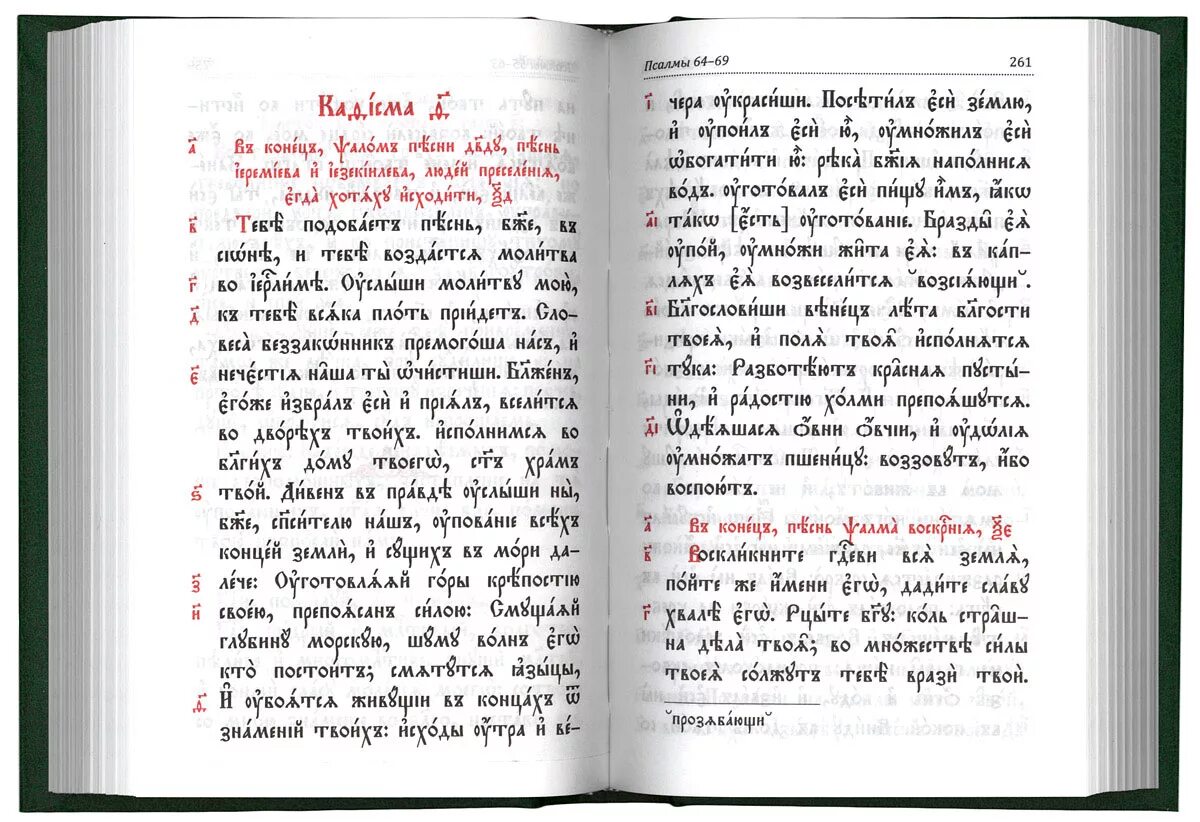 Каѳі́сма д҃
а҃ Въ коне́цъ, ѱало́мъ пѣ́сни дв҃ду, пѣ́снь
і҆еремі́ева и҆ і҆езекі́илева, люде́й преселе́нїѧ,
є҆гда̀ хотѧ́ху и҆сходи́ти, ѯ҃д
в҃ Тебѣ̀ подоба́етъ пѣ́снь, бж҃е, въ
сїѡ́нѣ, и҆ тебѣ̀ возда́стсѧ моли́тва
г҃ во і҆ерⷭ҇ли́мѣ. Оу҆слы́ши моли́тву мою̀,
д҃ къ тебѣ̀ всѧ́ка пло́ть прїи́детъ. Сло-
веса̀ беззако́нникъ премого́ша на́съ, и҆
є҃ нече́стїѧ на̑ша ты̀ ѡ҆чи́стиши. Бл҃же́нъ,
є҆го́же и҆збра́лъ є҆сѝ и҆ прїѧ́лъ, всели́тсѧ
во дво́рѣхъ твои́хъ. и҆спо́лнимсѧ во
бл҃ги́хъ до́му твоегѡ̀, ст҃ъ хра́мъ
ѕ҃ тво́й. Ди́венъ въ пра́вдѣ оу҆слы́ши ны̀,
бж҃е, сп҃си́телю на́шъ, оу҆пова́нїе всѣ́хъ
конце́й землѝ, и҆ су́щихъ въ мо́ри да-
з҃ ле́че: Оу҆готовлѧ́ѧй го́ры крѣ́постїю
и҃ свое́ю, препоѧ́санъ си́лою: Смуща́ѧй
глубину̀ морску́ю, шу́му во́лнъ є҆гѡ̀
кто̀ постои́тъ; смѧту́тсѧ ꙗ҆зы́цы,
ѳ҃ И҆ оу҆боѧ́тсѧ живу́щїи въ конца́хъ ѿ
зна́менїй твои́хъ: и҆схо́ды оу҆́тра и҆ ве́-
Псалмы 64–69 261
і҃ чера оу҆кра́сиши. Посѣти́лъ є҆сѝ зе́млю,
и҆ оу҆пои́лъ є҆сѝ ю҆̀, оу҆мно́жилъ є҆сѝ
ѡ҆богати́ти ю҆̀: рѣка̀ бж҃їѧ напо́лнисѧ
во́дъ. оу҆гото́валъ є҆сѝ пи́щу и҆̀мъ, ꙗ҆́кѡ
а҃і та́кѡ [є҆́сть] оу҆гото́ванїе. Бразды̑ є҆ѧ̀
оу҆по́й, оу҆мно́жи жи̑та є҆ѧ̀: въ ка́п-
лѧхъ є҆ѧ̀ возвесели́тсѧ "возсїѧ́ющи".
в҃і Бл҃гослови́ши вѣне́цъ лѣ́та бл҃гости
твоеѧ̀, и҆ полѧ̀ твоѧ̑ и҆спо́лнѧтсѧ
г҃і ту́ка: Разботѣ́ютъ кра̑снаѧ пусты́-
ни, и҆ ра́достїю хо́лми препоѧ́шутсѧ.
д҃і Ѡ҆дѣ́ѧшасѧ о҆́вни о҆́вчїи, и҆ оу҆дѡ́лїѧ
оу҆мно́жатъ пшени́цу: воззову́тъ, и҆́бо
воспою́тъ.
а҃ Въ коне́цъ, пѣ́снь ѱалма̀ воскрⷭ҇нїѧ, ѯ҃є
в҃ Воскли́кните гдⷭ҇еви всѧ̀ землѧ̀,
по́йте же и҆́мени є҆гѡ̀, дади́те сла́ву
г҃ хвалѣ̀ є҆гѡ̀. Рцы́те бг҃у: ко́ль стра̑ш-
на дѣла̀ твоѧ̑; во мно́жествѣ си́лы
твоеѧ̀ со́лжутъ тебѣ̀ вразѝ твоѝ.
"прозѧба́ющи"